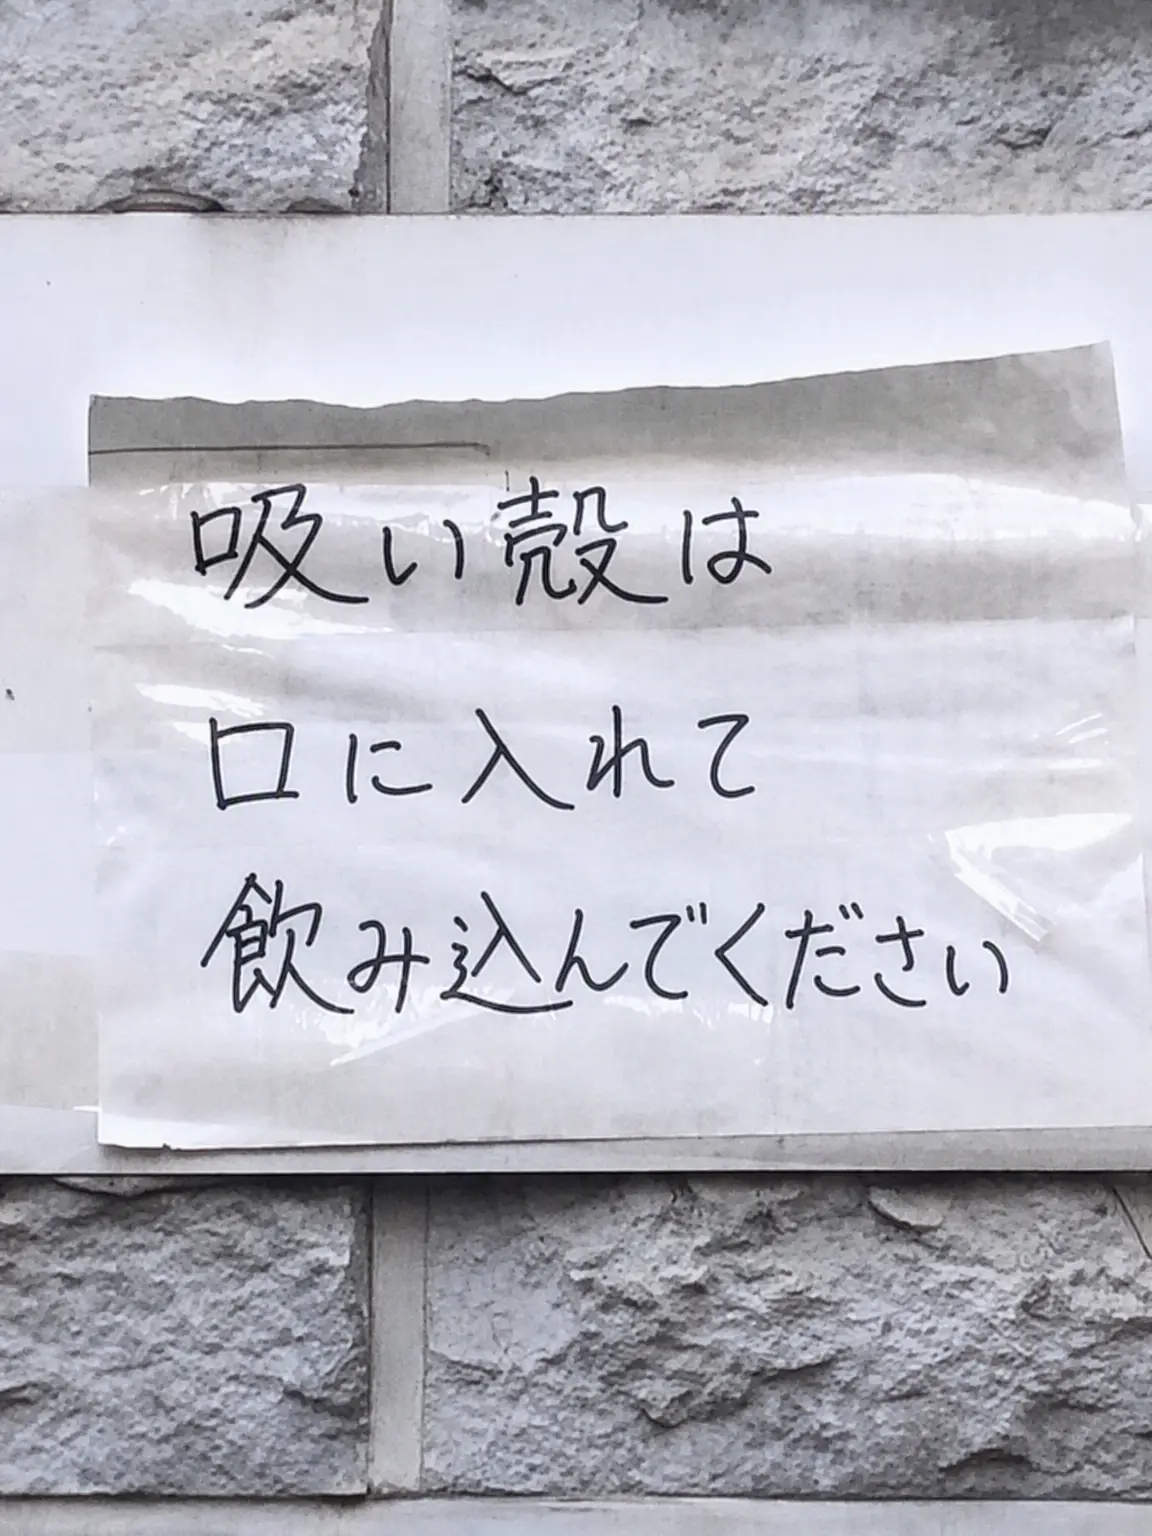 吸い殻は
口に入れて
飲み込んでください